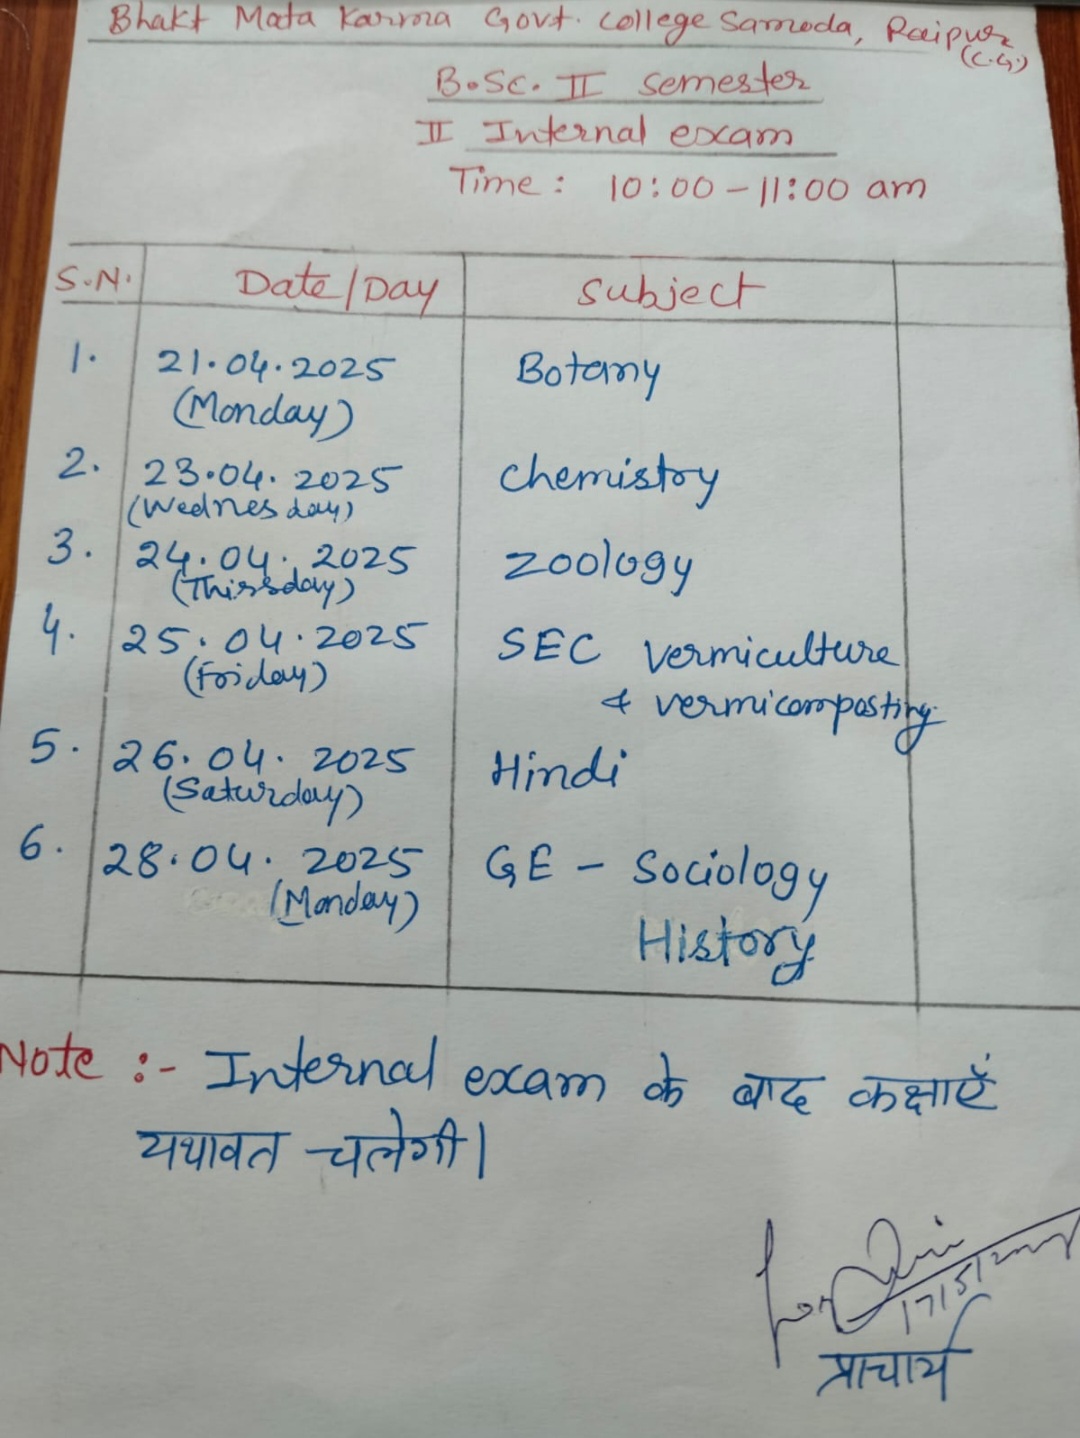 Bhakt Mata Karma Govt. College Samoda, Raipur
(C.G.)
B.Sc. II Semester
II Internal exam
Time : 10:00 - 11:00 am
S.N. Date/Day Subject
1. 21.04.2025 Botany
(Monday)
2. 23.04.2025 Chemistry
(Wednesday)
3. 24.04.2025 Zoology
(Thirsday)
4. 25.04.2025 SEC Vermiculture
(Friday) & vermicomposting
5. 26.04.2025 Hindi
(Saturday)
6. 28.04.2025 GE - Sociology
(Monday) History
Note :- Internal exam के बाद कक्षाएँ
यथावत चलेगी।
for
प्राचार्य